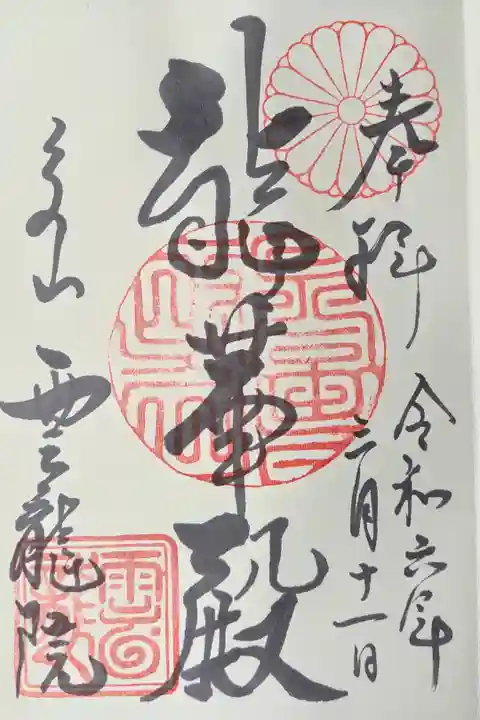 奉拝
令和六年
二月十一日
龍華殿
泉山 雲龍院